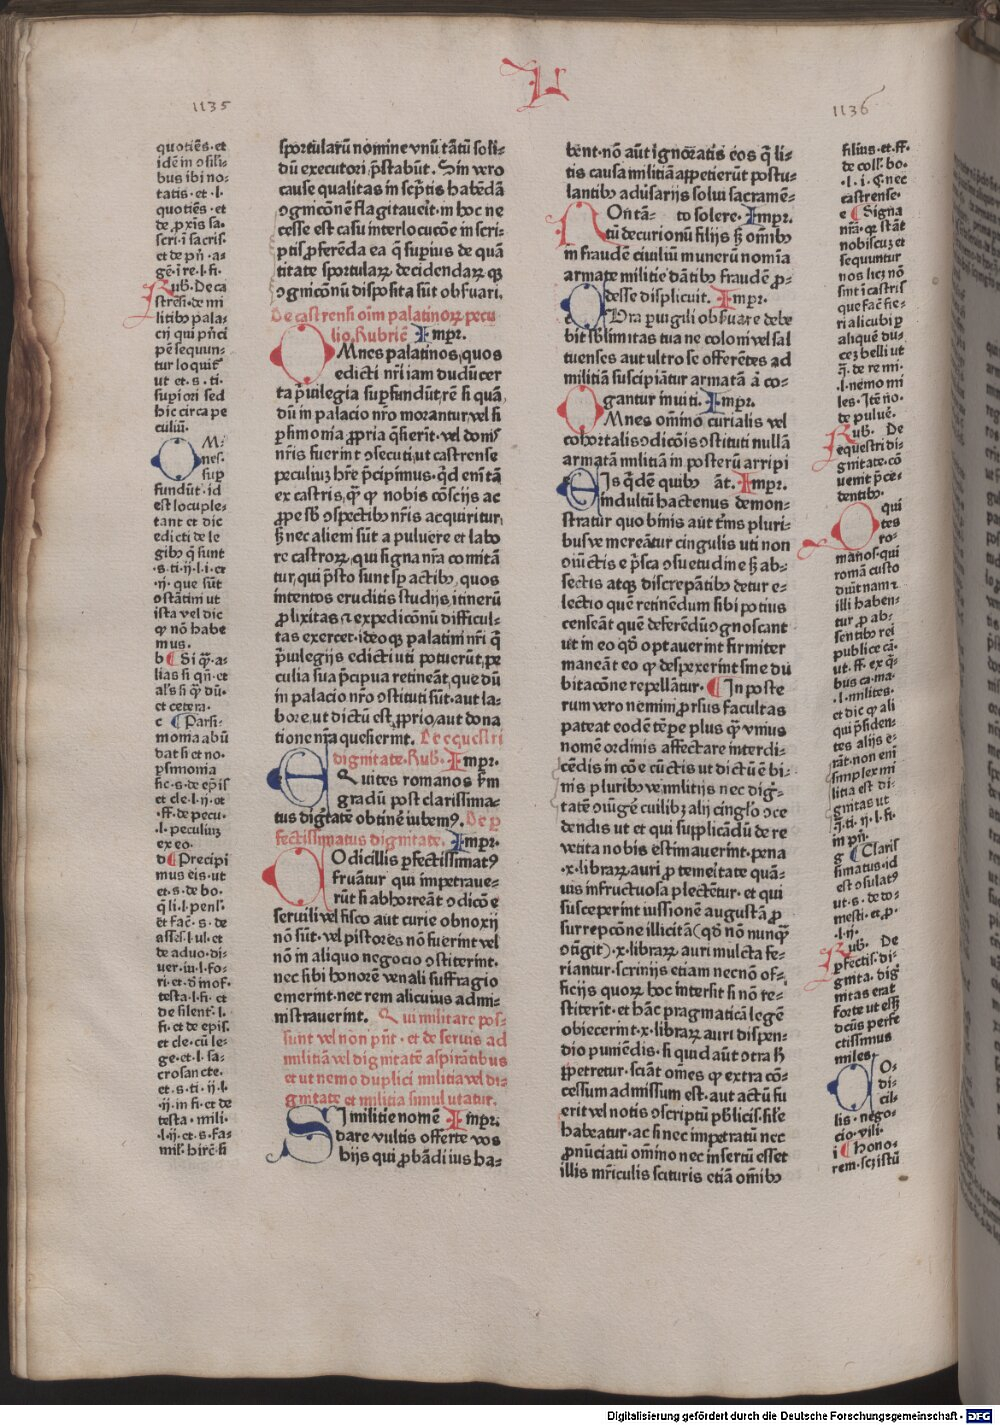 L
1135
1136
quotiēs·et
idē in ↄsili-
bus ibi no-
tatis·et·l·
quotiēs·et
de ꝓxis sa-
scri·i sacris·
et de pn̄·a-
gē·i re·l·fi·
Rub. De ca
strēsi·de mi
litibꝰ pala-
cn̄ qui pn̄ci
pē sequun-
tur loquit̄
ut et·s·ti·
supiori sed
hic circa pe
culiū·
OM-
nes·
sup
fundūt·id
est locuple-
tant et dic
edicti de le
gibꝰ q̄ sunt
·s·ti·ij·l·i·et
·ij·que sūt
ostātini ut
ista vel dic
ꝙ nō habe
mus·
b ¶ Si ꝙ̄·a-
lias si qn̄·et
al's si ꝙ dū·
et cetera·
c ¶ Parsi-
monia abū
dat si et no·
p̄simonia
sic·s·de ep̄is
et cle·l·ij·et
·ff·de pecu·
·l·peculiuȝ
ex eo·
d ¶ Precipi
mus eis·ut
et·s·de bo·
q̄ li·l·penl'·
et fac̄·s·de
asses·l·ul·et
de aduo·di-
uer·iu·l·fo-
ri·et·d inof·
testa·l·si·et
de silent·l·
si·et de epis·
et cle·cū le-
ge·et·l·sa-
crosancte·
et·s·ti·ij·l·
·ij·in fi·et de
testa·mili·
·l·ij·et·s·fa-
mil·hirē·si
sportularū nomine vnū tātū soli-
dū executori p̄stabūt. Sin vero
cause qualitas in scp̄tis habēdā
ↄgnicōnē flagitauerit·in hoc ne
cesse est casu interlocucōe in scri-
ptis ꝓferēda ea q̄ supius de quā
titate sportularꝝ decidendarꝝ qꝫ
ↄgnicōnū disposita sūt obseruari.
De castrensi oīm palatinorꝝ pecu
lio, Rubrice Impr.
OMnes palatinos, quos
edicti nr̄i iam dudū cer
ta p̄uilegia supfundūt, rē si quā
dū in palacio nr̄o morantur, vel si
ꝑsimonia ꝓpria q̄sierīt·vel donis
nr̄is fuerint ↄsecuti, ut castrense
peculiuȝ hr̄e p̄cipimus·qd̄ enī tā
ex castris, ꝙ̄ ꝙ nobis cōscijs ac
ꝓpe sb̄ ↄspectibꝰ nr̄is acquiritur,
sꝫ nec alieni sūt a puluere et labo
re castrorꝝ, qui signa nr̄a comitā
tur, qui p̄sto sunt sp̄ actibꝰ, quos
intentos eruditis studijs, itinerū
ꝓlixitas ⁊ expedicōnū difficul-
tas exercet·ideoqꝫ palatini nr̄i q̄
p̄uilegijs edicti uti potuerūt, pe
culia sua p̄cipua retineāt, que dū
in palacio nr̄o ↄstituti sūt·aut la-
bore, ut dictū est ꝓprio, aut dona
tione nr̄a quesierint. De equestri
dignitate·Rub. Impr.
EQuites romanos scdm
gradū post clarissima-
tus dignitatē obtinē iubemꝰ. De ꝑ
fectissimatus dignitate. Impr.
COdicillis ꝑfectissimatꝰ
fruātur qui impetraue-
rūt si abhorreāt ↄdicōe
seruili vel fisco aut curie obnoxij
nō sūt·vel pistores nō fuerint vel
nō in aliquo negocio ↄstiterint·
nec sibi honorē venali suffragio
emerint·nec rem alicuius admi-
nistrauerint. Qui militare pos-
sunt vel non pn̄t·et de seruis ad
militiā vel dignitatē aspirātibus
et ut nemo duplici militia vel di-
gnitate et militia simul utatur.
SI militie nomē Impr.
dare vultis offerte vos
hijs qui ꝓbādi ius ha-
bent·nō aūt ignoratis eos q̄ li-
tis causa militiā appetierūt postu-
lantibꝰ adūsarijs solui sacramē-
NOn tā- to solere. Impr.
tū decurionū filijs sꝫ om̄ibꝰ
in fraudē ciuiliū munerū nomīa
armate militie dātibꝰ fraudē ꝓ-
desse displicuit. Impr.
CUra puigili obseruare debe
bit sblimitas tua ne coloni vel sal
tuenses aut ultro se offerētes ad
militiā suscipiātur armatā ā co-
gantur inuiti. Impr.
OMnes om̄ino curialis vel
cohortalis ↄdicōis ↄstituti nullā
armatā militiā in posterū arripi
EIs qdē quibꝰ āt. Impr.
indultū hactenus demon-
stratur quo binis aūt trīis pluri-
busve mereātur cingulis uti non
ↄiūctis e p̄sca ↄsuetudine sꝫ ab-
sectis atqꝫ discrepātibꝰ detur e-
lectio quē retinēdum sibi potius
censeāt quē deferēdū ↄgnoscant
ut in eo qd̄ optauerint firmiter
maneāt eo ꝙ despexerint sine du
bitacōne repellātur. ¶ In poste
rum vero nemini ꝓrsus facultas
pateat eodē tēpe plus ꝙ̄ vnius
nomē ordinis affectare interdi-
cēdis in cōe cūctis ut dictū ē bi-
nis pluribꝰve militijs nec dign̄-
tatē ↄiūgē cuilibꝫ alij cinglo ↄce
dendis ut et qui supplicādū de re
vetita nobis estimauerint·pena
·x·librarꝝ auri ꝓ temeitate quā-
uis infructuosa plectētur·et qui
susceperint iussionē augustā ꝓ
surrepcōne illicitā (qd̄ nō nunꝙ̄
ↄtigit)·x·librarꝝ auri mulcta fe-
riantur·scrinijs etiam necnō of-
ficijs quorꝝ hoc intersit si nō re-
stiterīt·et hāc pragmaticā legē
obiecerint·x·librarꝝ auri dispen-
dio puniēdis·si quid aūt ↄtra h̄
ꝑpetretur·sciāt om̄es ꝙ extra cō-
cessum admissum est·aut actū fu
erit vel notis ↄscriptū pb̄licis·sil'e
habeatur·ac si nec impetratū nec
ꝓnūciatū om̄ino nec insertū esset
illis mr̄iculis scituris etiā om̄ibꝰ
filius·et·ff·
de coll·bo·
·l·i·C nec
castrense·
e ¶ Signa
nr̄a·qꝫ stāt
nobiscuȝ et
sequuntur
nos licȝ nō
sint i castris
que fac̄ fie-
ri alicubi ꝑ
aliquē du-
cez belli ut
q̄·de re mi·
·l·nemo mi
les·Itē no·
de puluē·
Rub· De
equestri di-
gnitate·cō
uenit p̄ce-
dentibꝰ·
Equi
tes
ro-
manos·qui
romā custo
diūt nam ⁊
illi haben-
tur ꝓ ab-
sentibꝰ rei
publice cā·
ut·ff·ex q̄-
bus ca·ma·
·l·milites·
et dic ꝙ ali
qui p̄siden-
tes alijs e-
rāt·non enī
simplex mi
litia est di-
gnitas ut
q̄·ti·ij·l·fi·
in pn̄·
g ¶ Claris
simatus·id
est ↄsulatꝰ
ut·s·de do-
mesti·et·ꝓ·
·l·ij·
Rub· De
ꝑfectis·di-
gnita·dig
nitas erat
forte ut essꝫ
dc̄us perfe
ctissimus
miles·
CO-
di-
cil-
lis·nego-
cio·vili·
i ¶ hono-
rem·scȝ istū
Digitalisierung gefördert durch die Deutsche Forschungsgemeinschaft - DFG